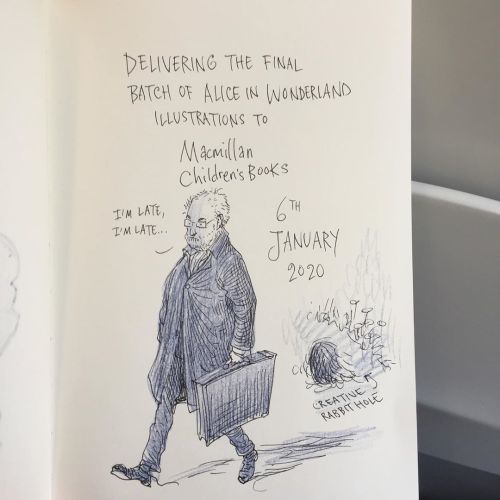 DELIVERING THE FINAL
BATCH OF ALICE IN WONDERLAND
ILLUSTRATIONS TO
Macmillan
Children's Books
I'M LATE,
I'M LATE...
6TH
JANUARY
2020
CREATIVE
RABBIT HOLE